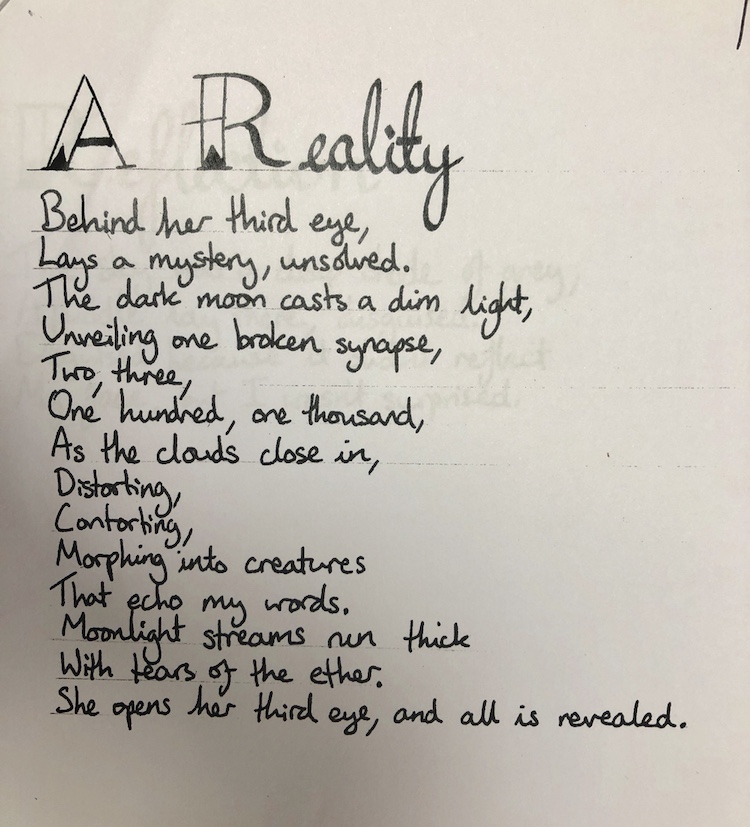 A Reality
Behind her third eye,
Lays a mystery, unsolved.
The dark moon casts a dim light,
Unveiling one broken synapse,
Two, three,
One hundred, one thousand,
As the clouds close in,
Distorting,
Contorting,
Morphing into creatures
That echo my words.
Moonlight streams run thick
With tears of the ether.
She opens her third eye, and all is revealed.